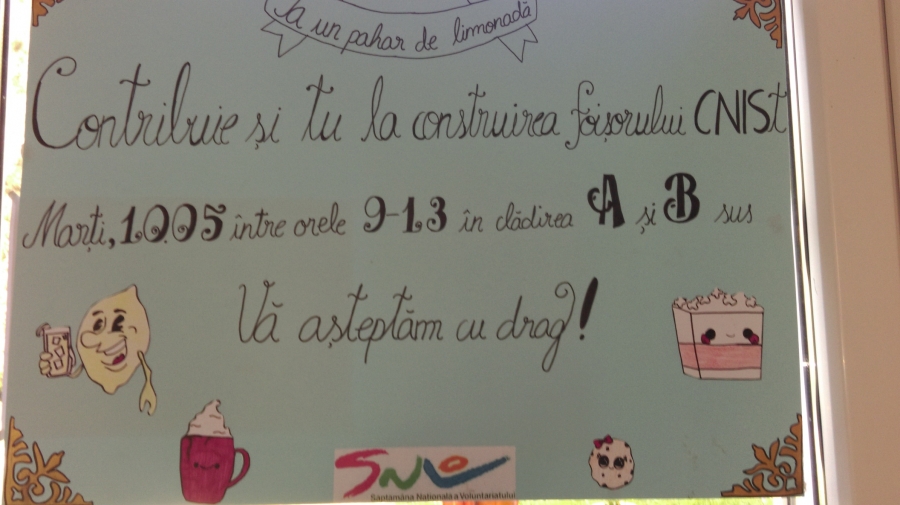 Ia un pahar de limonadă
Contribuie și tu la construirea foișorului CNISt
Marți, 10.05 între orele 9-13 în clădirea A și B sus
Vă așteptăm cu drag!
SNV
Săptămâna Națională a Voluntariatului